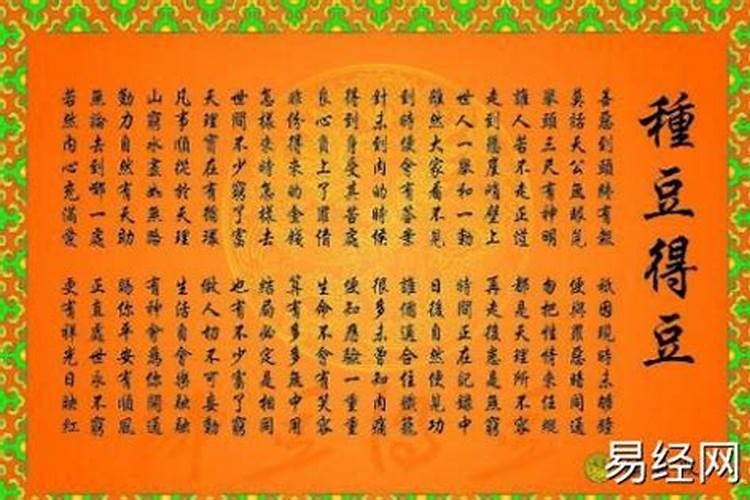 種豆得豆
善惡到頭終有報 祇因現時未
莫話天公無眼見 便與罪惡暗同通
舉頭三尺有神明 勿把性情來任縱
誰人若不走正道 都是天理所不容
走到懸崖峭壁上 再走後悉是無窮
世人一舉和一動 時間正在記錄中
雖然大家看不見 日後自然便見功
到時便會有答案 誰個適合住鐵籠
針未到肉的時候 很多未曾知肉痛
得到身受其苦處 便知應驗一重重
良心負上了罪債 生命不會有笑容
非份得來的金錢 算有多多無中用
怎樣來時怎樣去 結局必定是相同
世間不少窮了富 也有不少富了窮
天理實在有循環 做人切不可妄動
凡事順從於天理 生活自會樂融融
山窮水盡如無路 有神會為你開通
勤力自然有天助 賜你平安有順風
無論去到哪一處 正直處世永不窮
若然內心充滿愛 更有祥光日映紅
易经网